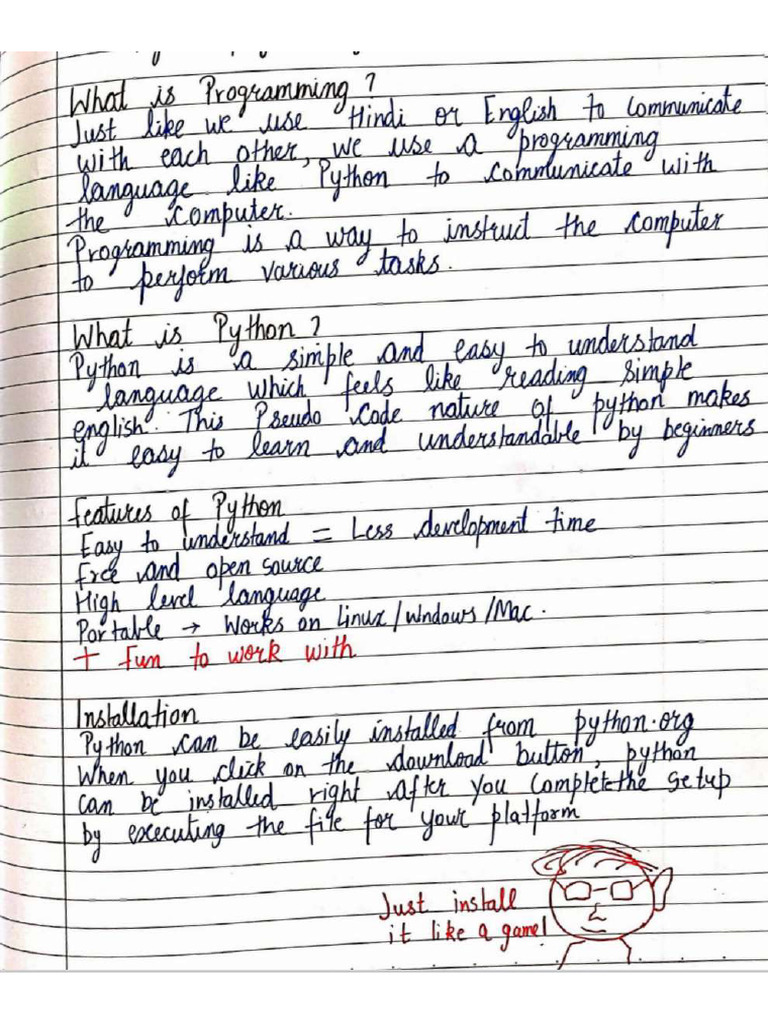 What is Programming?
Just like we use Hindi or English to communicate
with each other, we use a programming
language like Python to communicate with
the computer.
Programming is a way to instruct the computer
to perform various tasks.
What is Python?
Python is a simple and easy to understand
language which feels like reading simple
english. This Pseudo code nature of python makes
it easy to learn and understandable by beginners
features of Python
Easy to understand = Less development time
free and open source
High level language
Portable → Works on Linux/Windows/Mac.
+ fun to work with
Installation
Python can be easily installed from python.org
When you click on the download button, python
can be installed right after you complete the setup
by executing the file for your platform
Just install
it like a game!